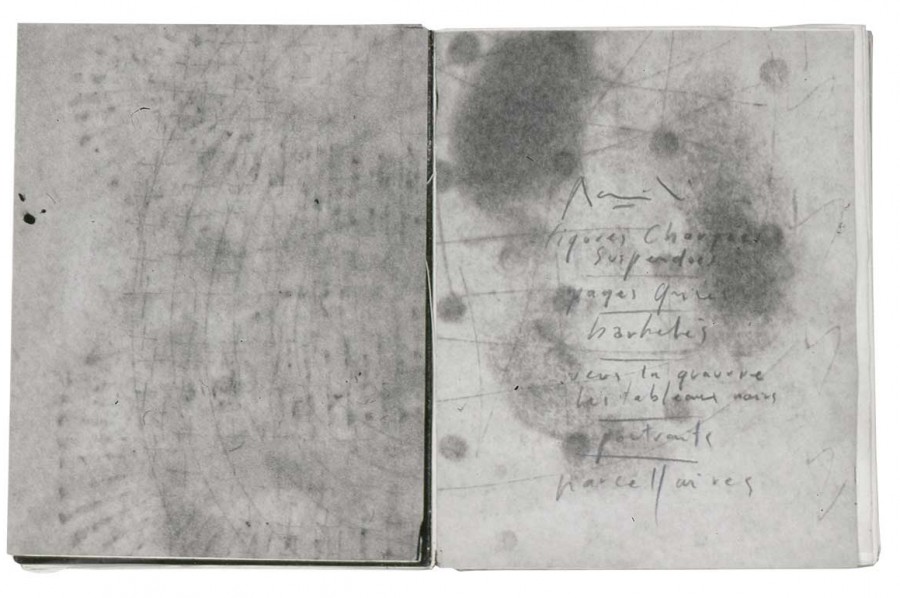 figures
Suspendues
pages grises
barbelés
vers la gravure
les tableaux noirs
portraits
parcellaires